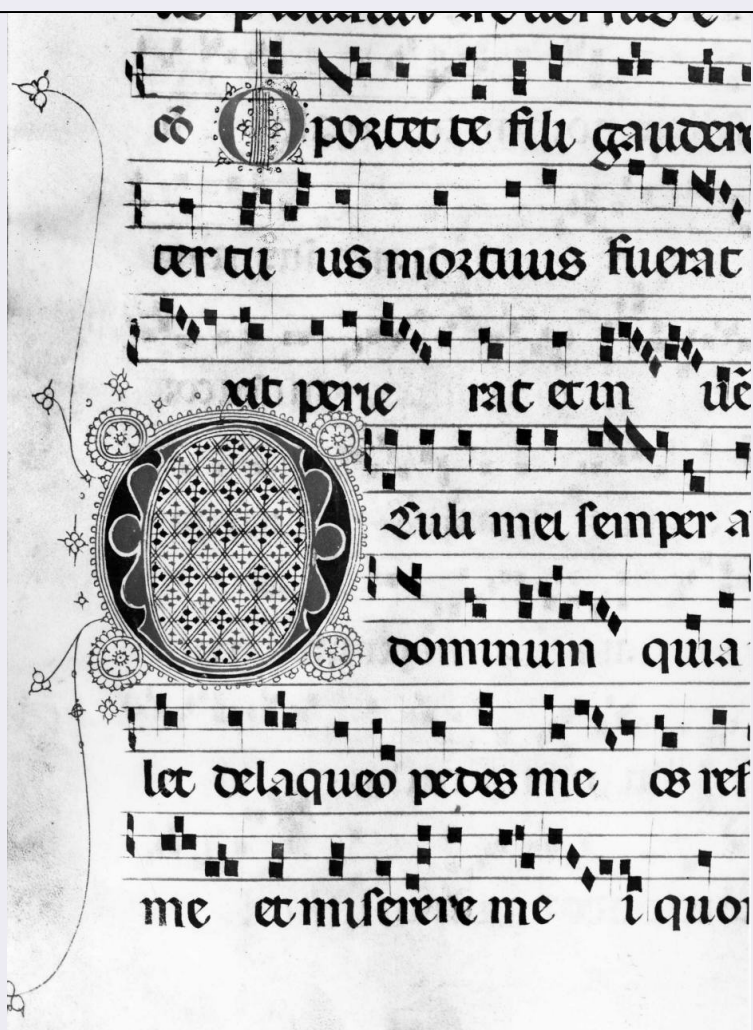 cõ Oportet te fili gaudere
ter tu us mortuus fuerat
xit perie rat et in uẽ
Oculi mei semper a
dominum quia
let de laqueo pedes me os res
me et miserere me i quo